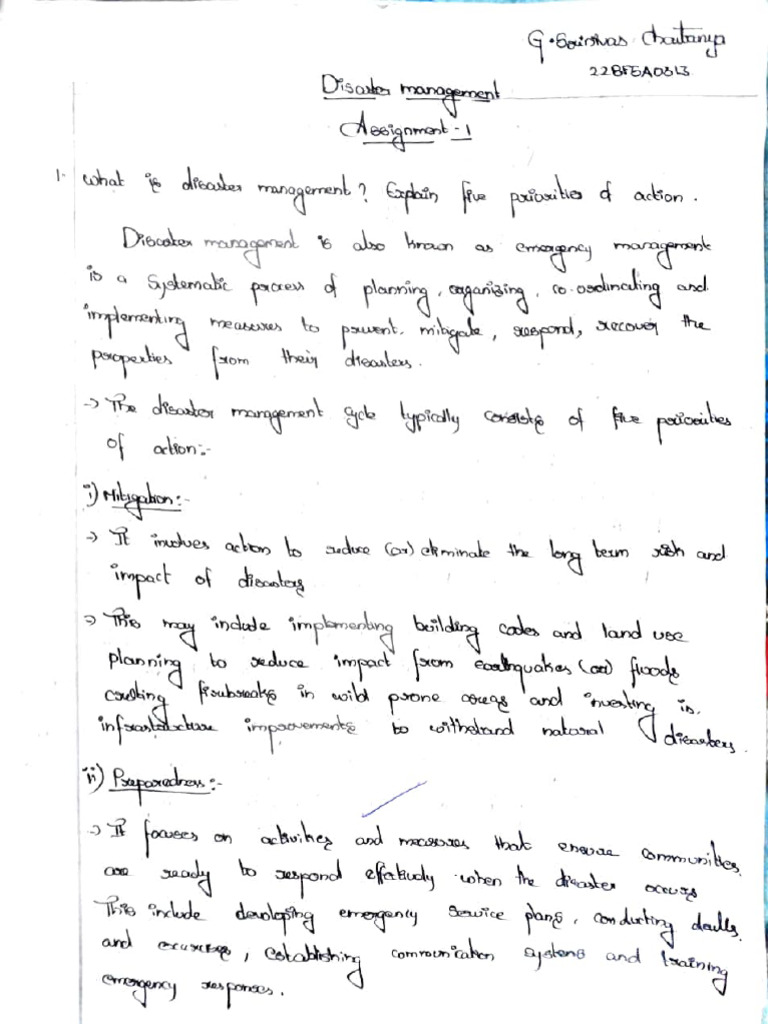 G. Srinivas Chaitanya
228F5A0313
Disaster management
Assignment - 1
1. What is disaster management? Explain five priorities of action.
Disaster management is also known as emergency management
is a Systematic process of planning, organizing, co-ordinating and
implementing measures to prevent, mitigate, respond, recover the
properties from their disasters.
-> The disaster management cycle typically consists of five priorities
of action:-
i) Mitigation:-
-> It involves action to reduce (or) eliminate the long term risk and
impact of disasters
-> This may include implementing building codes and land use
planning to reduce impact from earthquakes (or) floods
creating firebreaks in wild prone areas and investing in
infrastructure improvements to withstand natural disasters.
ii) Preparedness:-
-> It focuses on activities and measures that ensure communities
are ready to respond effectively when the disaster occurs
This include developing emergency service plans, conducting drills
and exercises, establishing communication systems and training
emergency responses.